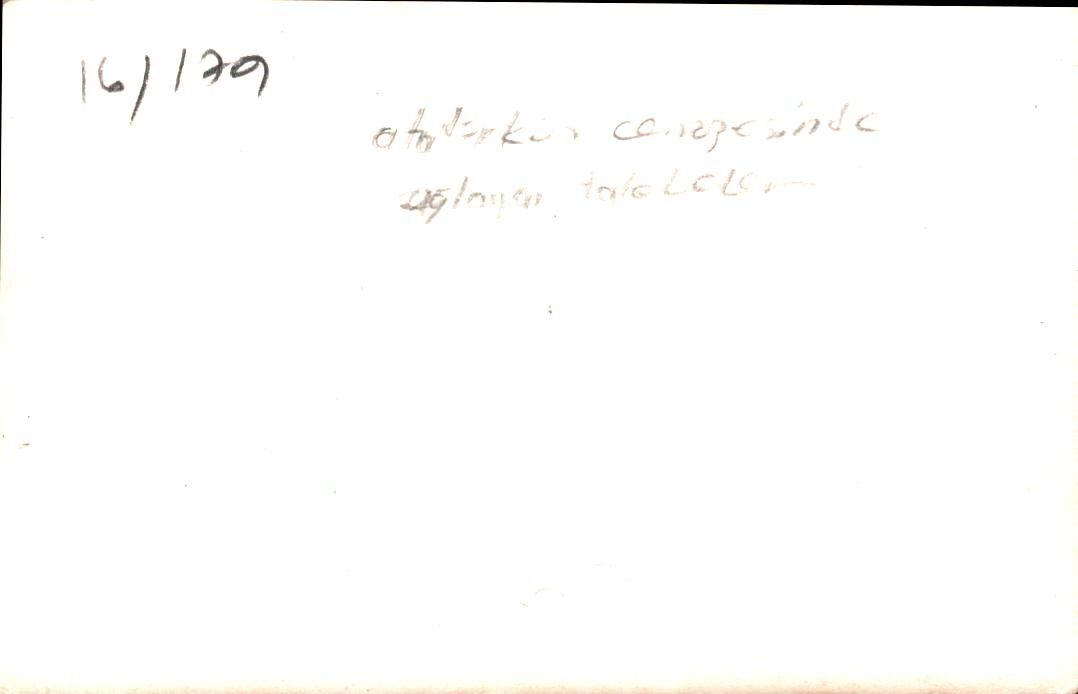 16/179
atatürkün cenazesinde
ağlayan talebeler